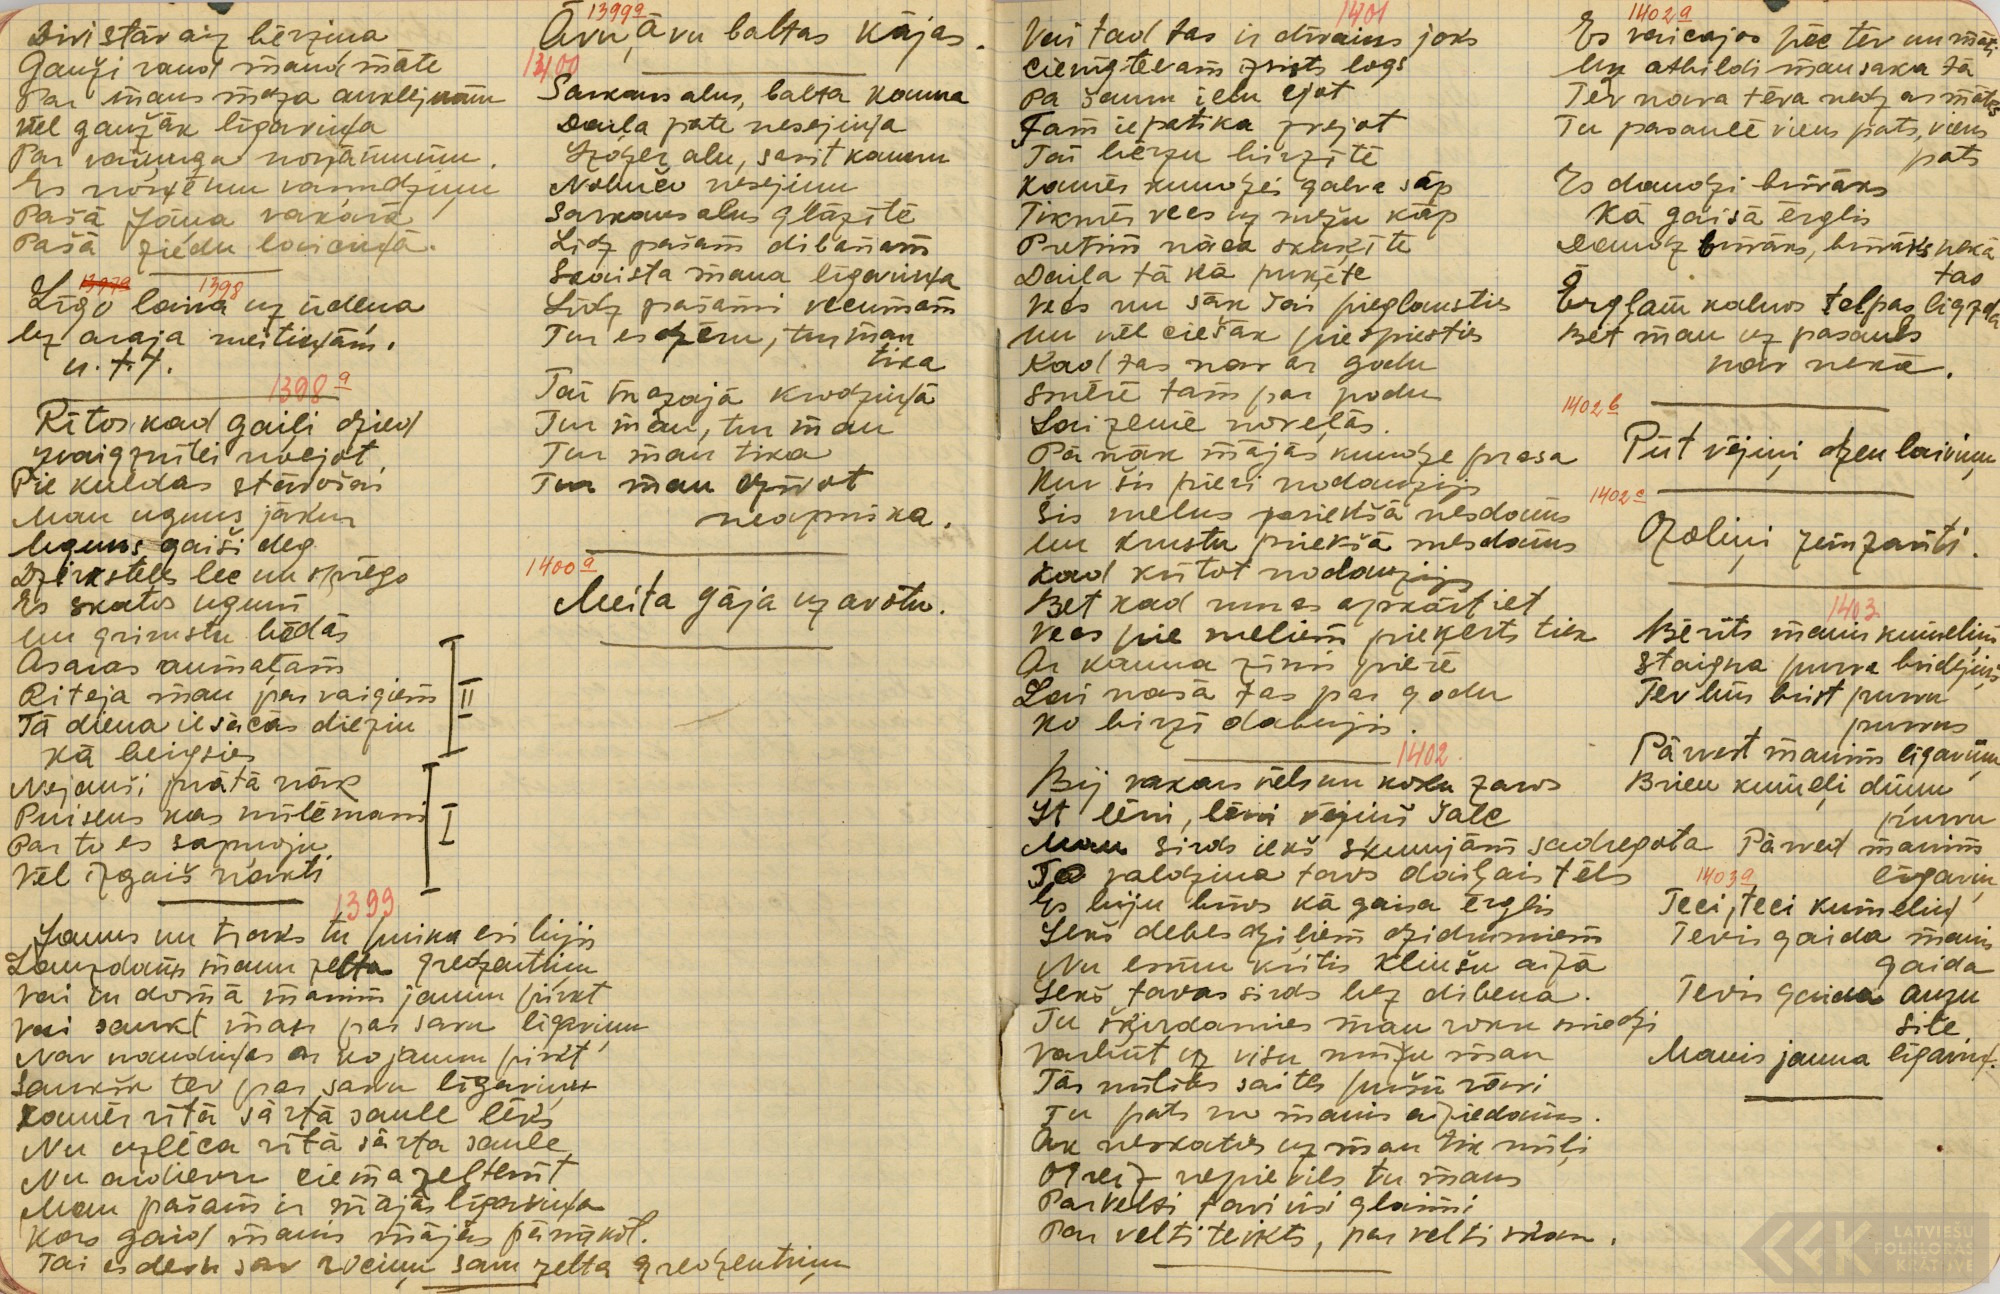 Divi stāv aiz bērziņa
Gauži raud manā māte
Par manu maza auklējumu
Vēl gaužāk līgaviņa
Par vaiņuga noņēmumu.
Es noņēmu vainadziņu
Pašā Jāņa vakarā
Pašā ziedu laiciņā.
1398
Līgo laiva uz ūdeņa
Uz araja meitiņām,
u.t.t.
1398a
Rītos, kad gaiļi dzied
zvaigznītei noejot
Pie kuldas stāvošai
Man uguns jākur
Uguns gaiši deg
Dzirksteles lec un spiego
Es skatos ugunī
Un grimstu bēdās
Asaras aumaļam
Riteja man par vaigiem
Tā diena iesācās diezin
kā beigsies
II
Nejauši prātā nāk
Puisens kas mīlē mani
Par to es sapņoju
Vēl izgaiš nakti
I
1399
Jauns un traks tu puika esi bijis
Lauzdams manu zelta gredzentiņu
Vai tu domā manim jaunu pirkt
Vai saukt man par savu līgaviņu
Nav naudiņas ar ko jaunu pirkt
Saukšu tev par savu līgaviņu
Kamēr rītā sārtā saule lēks
Nu uzlēca rītā sārta saule
Nu ardievu ciema zeltenīt
Man pašam ir mājās līgaviņa
Kas gaid manis mājās pārnākot.
Tai es devu sav rociņu sanu zelta gredzentiņu
1399a
Āvu, āvu baltas kājas.
1400
Sarkans alus, balta kanna
Daiļa pate nesejiņa
Izdzer alu, sasit kannu
Nobučo nesejiņu
Sarkans alus glāzītē
Līdz pašam dibenam
Skaista mana līgaviņa
Līdz pašami vecumam
Tur es dzeru, tur man
tika
Tai mazajā krodziņā
Tur man, tur man
Tur man tika
Tur man dzīvot
neapnika.
1400a
Meita gāja uz avotu.
1401
Vai tad tas ir dīvains joks
cienīgtēvam znots logs
Pa šauru ielu ejot
Tam iepatika prejot
Tai bērzu birzītē
Kamēr kundzei galva sāp
Tikmēr vecs uz mežu kāp
Pretim nāca skuķīte
Daiļa tā kā puķīte
Vecs nu sāk tai pieglausties
Un vēl ciešāk piespiesties
Kad tas nav ar godu
Smērē tam par podu
Lai zemē noveļās.
Pānāk mājās kundze prasa
Kur šis pieri nodauzījs
Šis melus priekšā nesdams
Un krustu priekšā mesdams
Kad kritot nodauzījs
Bet kad runas apkārt iet
Vecs pie meliem pieķerts tiek
Ar kauna zīmi pierē
Lai nasā tas par godu
Ko birzī dabujis.
1402
Bij vakars vēls un koku zaros
It lēni, lēni vējiņš šalc
Man sirds iekš skumjām sadregota
To valdzina tavs daiļais tēls
Es biju brīvs kā gaisa ērglis
Iekš debesdziliem dzidrumiem
Nu esmu kritis klinšu aizā
Iekš tavas sirds bez dibena.
Tu šķirdamies man roku sniedzi
Varbūt uz visu mūžu man
Tās mīlības saites pušu rāvi
Tu pats no manis aiziedams.
Ak neskaties uz man tik mīļi
Otreiz nepievils tu mans
Parvelti tavi visi glaimi
Par velti teikts, par velti skan.
1402a
Es vaicajos pēc tēv un māti
Un atbildi man saka tā
Tev nava tēva nedz ar mātes
Tu pasaulē viens pats, viens
pats
Es daudzi brīvāks
Kā gaisā ērglis
Daudz brīvāks, brīvāks nekā
tas
Ērgļam kalnos telpas ligzda
Bet man uz pasaules
nav nekā.
1402b
Pūt vējiņi dzen laiviņu
1402c
Ozoliņi zemzarīti.
1403
Bērīts manis kumeliņš
Staigna purva bridējiņš
Tev būs brist purvu
purvus
Pārvest manim līgaviņu
Brien kumeļi dūņu
purvu
Pārved manim
līgaviņ
1403a
Teci, teci kumeliņ
Tevis gaida manis
gaida
Tevis gaida auzu
sile
Manis jauna līgaviņ.
LATVIEŠU
FOLKLORAS
KRĀTUVE